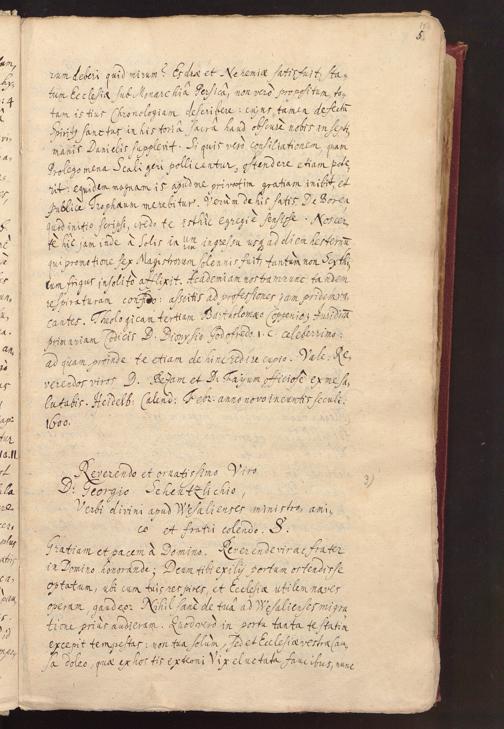 5.
rum deberi quid mirum? Esdræ et Nehemiæ satis fuit, sta-
tum Ecclesiæ sub Monarchiâ Persicâ, non verò propositum, to-
tam istius Chronologiam describere: cujus tamen defectū
Spiritus sanctus in historiâ sacrâ haud obscurè nobis in septi-
manis Danielis supplevit. Si quis verò conciliationem, quam
Prolegomena Scaligeri pollicentur, ostendere etiam pote-
rit: equidem magnam is apud me privatim gratiam inibit, et
publicè Trophæum merebitur. Verùm de his satis. De Borea
quod initio scripsi, credo te isthic egregiè sensisse. Noster
te hîc jam inde à Solis in ingressu usq, ad diem hesternū,
qui promotione sex Magistrorum solennis fuit, tantum non Scythi-
cum frigus insolitò afflixit. Academiam nostram nunc tandem
respiraturam confido: ascitis ad professiones jam pridem va-
cantes. Theologicam tertiam Bartholomæo Coppenio, Juridicā
primariam Codicis D. Dionysio Godofredo celeberrimo:
ad quam proinde te etiam dehinc redire cupio. Vale. Re-
verendos viros D. Bezam et D. Fayum officiosè ex me sa-
lutabis. Heidelb: Calend: Febr: anno novo ineuntis seculi.
1600.
Reverendo et ornatissimo Viro
D. Georgio Schentzlichio,
Verbi divini apud Wesalienses ministro, ami-
co et fratri colendo. S.
3)
Gratiam et pacem à Domino. Reverende vir ac frater
in Domino honorande; Deum tibi exilij portum ostendisse
optatum, ubi cum tuis respires, et Ecclesiæ utilem naves
operam, gaudeo. Nihil sanè de tuâ ad Wesalienses migra-
tione prius audieram. Quod verò in portu tanta te statim
excepit tempestas: non tuâ solum, sed et Ecclesiæ vestræ cau-
sâ doleo, quæ ex hostis externi vix eluctata faucibus, nunc